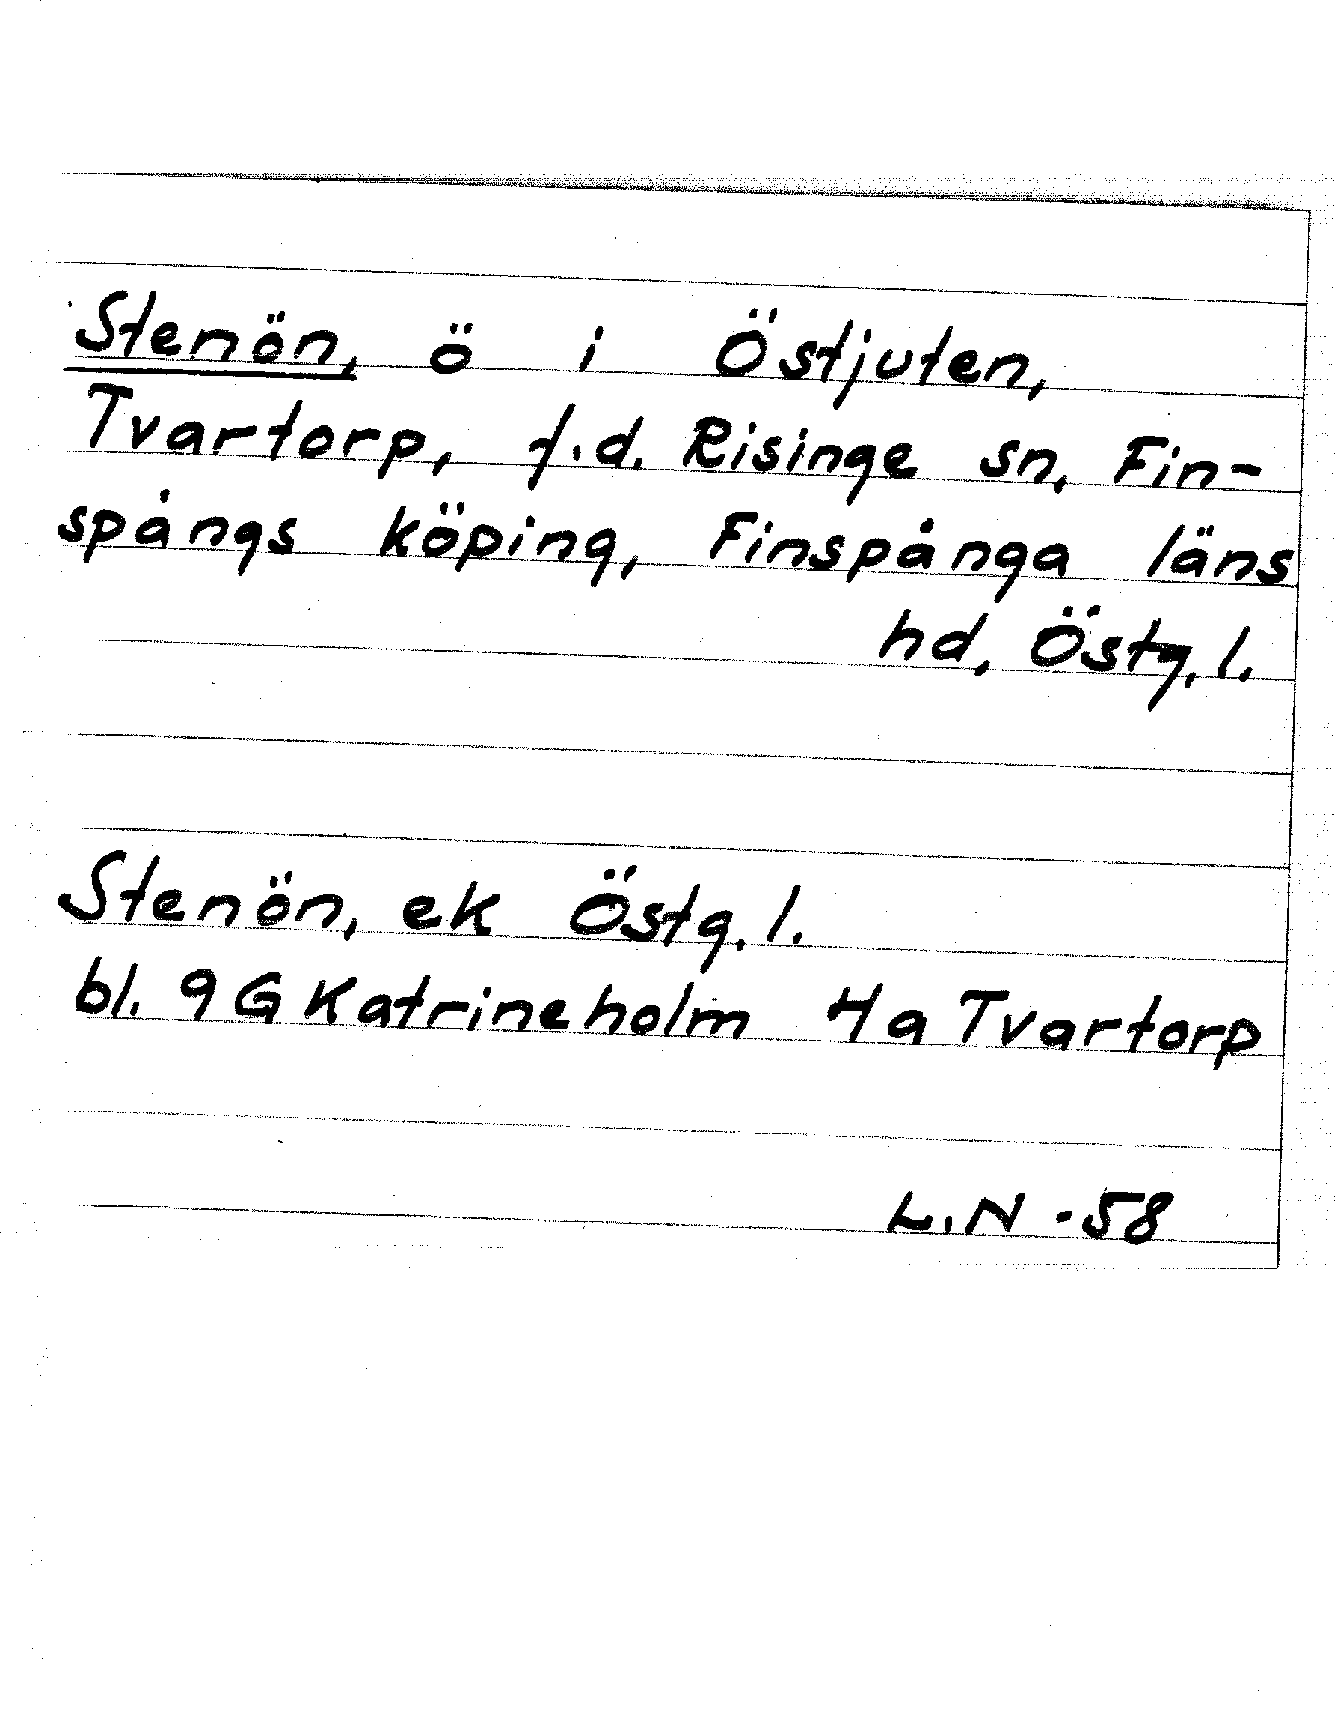 Stenön, ö i Östjuten,
Tvartorp, f.d. Risinge sn, Fin-
spångs köping, Finspånga läns
hd, Östg. l.
Stenön, ek Östg. l.
bl. 9 G Katrineholm 4a Tvartorp
L.N -58